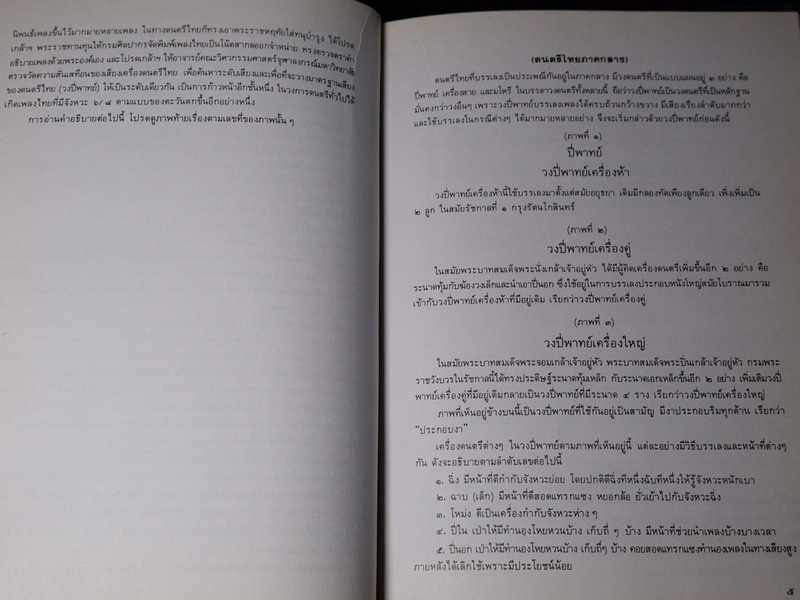 นิพนธ์เพลงขึ้นไว้มากมายหลายเพลง ในทางดนตรีไทยก็ทรงเอาพระราชหฤทัยใส่ทนุบำรุง ได้โปรด
เกล้าฯ พระราชทานทุนให้กรมศิลปากรจัดพิมพ์เพลงไทยเป็นโน้ตสากลออกจำหน่าย ทรงตรวจตราคำ
อธิบายเพลงด้วยพระองค์เอง และโปรดเกล้าฯ ให้อาจารย์คณะวิศวกรรมศาสตร์จุฬาลงกรณ์มหาวิทยาลัย
ตรวจวัดความสั่นเสทือนของเสียงเครื่องดนตรีไทย เพื่อค้นหาระดับเสียงและเพื่อที่จะวางมาตรฐานเสียง
ของดนตรีไทย (วงปี่พาทย์) ให้เป็นระดับเดียวกัน เป็นการก้าวหน้าอีกขั้นหนึ่ง ในวงการดนตรีทั่วไปได้
เกิดเพลงไทยที่มีจังหวะ ๖/๘ ตามแบบของตะวันตกขึ้นอีกอย่างหนึ่ง
การอ่านคำอธิบายต่อไปนี้ โปรดดูภาพท้ายเรื่องตามเลขที่ของภาพนั้น ๆ
(ดนตรีไทยภาคกลาง)
ดนตรีไทยที่บรรเลงเป็นประเพณีกันอยู่ในภาคกลาง มีวงดนตรีที่เป็นแบบแผนอยู่ ๓ อย่าง คือ
ปี่พาทย์ เครื่องสาย และมโหรี ในบรรดาวงดนตรีทั้งหลายนี้ ถือว่าวงปี่พาทย์เป็นวงดนตรีที่เป็นหลักฐาน
มั่นคงกว่าวงอื่นๆ เพราะวงปี่พาทย์บรรเลงเพลงได้ครบถ้วนกว้างขวาง มีเสียงเรียงลำดับมากกว่า
และใช้บรรเลงในกรณีต่างๆ ได้มากมายหลายอย่าง จึงจะเริ่มกล่าวด้วยวงปี่พาทย์ก่อนดังนี้
(ภาพที่ ๑)
ปี่พาทย์
วงปี่พาทย์เครื่องห้า
วงปี่พาทย์เครื่องห้านี้ใช้บรรเลงมาตั้งแต่สมัยอยุธยา เดิมมีกลองทัดเพียงลูกเดียว เพิ่งเพิ่มเป็น
๒ ลูก ในสมัยรัชกาลที่ ๑ กรุงรัตนโกสินทร์
(ภาพที่ ๒)
วงปี่พาทย์เครื่องคู่
ในสมัยพระบาทสมเด็จพระนั่งเกล้าเจ้าอยู่หัว ได้มีผู้คิดเครื่องดนตรีเพิ่มขึ้นอีก ๒ อย่าง คือ
ระนาดทุ้มกับฆ้องวงเล็กและนำเอาปี่นอก ซึ่งใช้อยู่ในการบรรเลงประกอบหนังใหญ่สมัยโบราณมารวม
เข้ากับวงปี่พาทย์เครื่องห้าที่มีอยู่เดิม เรียกว่าวงปี่พาทย์เครื่องคู่
(ภาพที่ ๓)
วงปี่พาทย์เครื่องใหญ่
ในสมัยพระบาทสมเด็จพระจอมเกล้าเจ้าอยู่หัว พระบาทสมเด็จพระปิ่นเกล้าเจ้าอยู่หัว กรมพระ
ราชวังบวรในรัชกาลนี้ได้ทรงประดิษฐ์ระนาดทุ้มเหล็ก กับระนาดเอกเหล็กขึ้นอีก ๒ อย่าง เพิ่มเติมวงปี่
พาทย์เครื่องคู่ที่มีอยู่เดิมกลายเป็นวงปี่พาทย์ที่มีระนาด ๔ ราง เรียกว่าวงปี่พาทย์เครื่องใหญ่
ภาพที่เห็นอยู่ข้างบนนี้เป็นวงปี่พาทย์ที่ใช้กันอยู่เป็นสามัญ มีงาประกอบริมทุกด้าน เรียกว่า
"ประกอบงา"
เครื่องดนตรีต่างๆ ในวงปี่พาทย์ตามภาพที่เห็นอยู่นี้ แต่ละอย่างมีวิธีบรรเลงและหน้าที่ต่างๆ
กัน ดังจะอธิบายตามลำดับเลขต่อไปนี้
๑. ฉิ่ง มีหน้าที่ตีกำกับจังหวะย่อย โดยปกติตีฉิ่งทีหนึ่งฉับทีหนึ่งให้รู้จังหวะหนักเบา
๒. ฉาบ (เล็ก) มีหน้าที่ตีสอดแทรกแซง หยอกล้อ ยั่วเย้าไปกับจังหวะฉิ่ง
๓. โหม่ง ตีเป็นเครื่องกำกับจังหวะห่าง ๆ
๔. ปี่ใน เป่าให้มีทำนองโหยหวนบ้าง เก็บถี่ ๆ บ้าง มีหน้าที่ช่วยนำเพลงบ้างบางเวลา
๕. ปี่นอก เป่าให้มีทำนองโหยหวนบ้าง เก็บถี่ๆ บ้าง คอยสอดแทรกแซงทำนองเพลงในทางเสียงสูง
ภายหลังได้เลิกใช้เพราะมีประโยชน์น้อย
๕